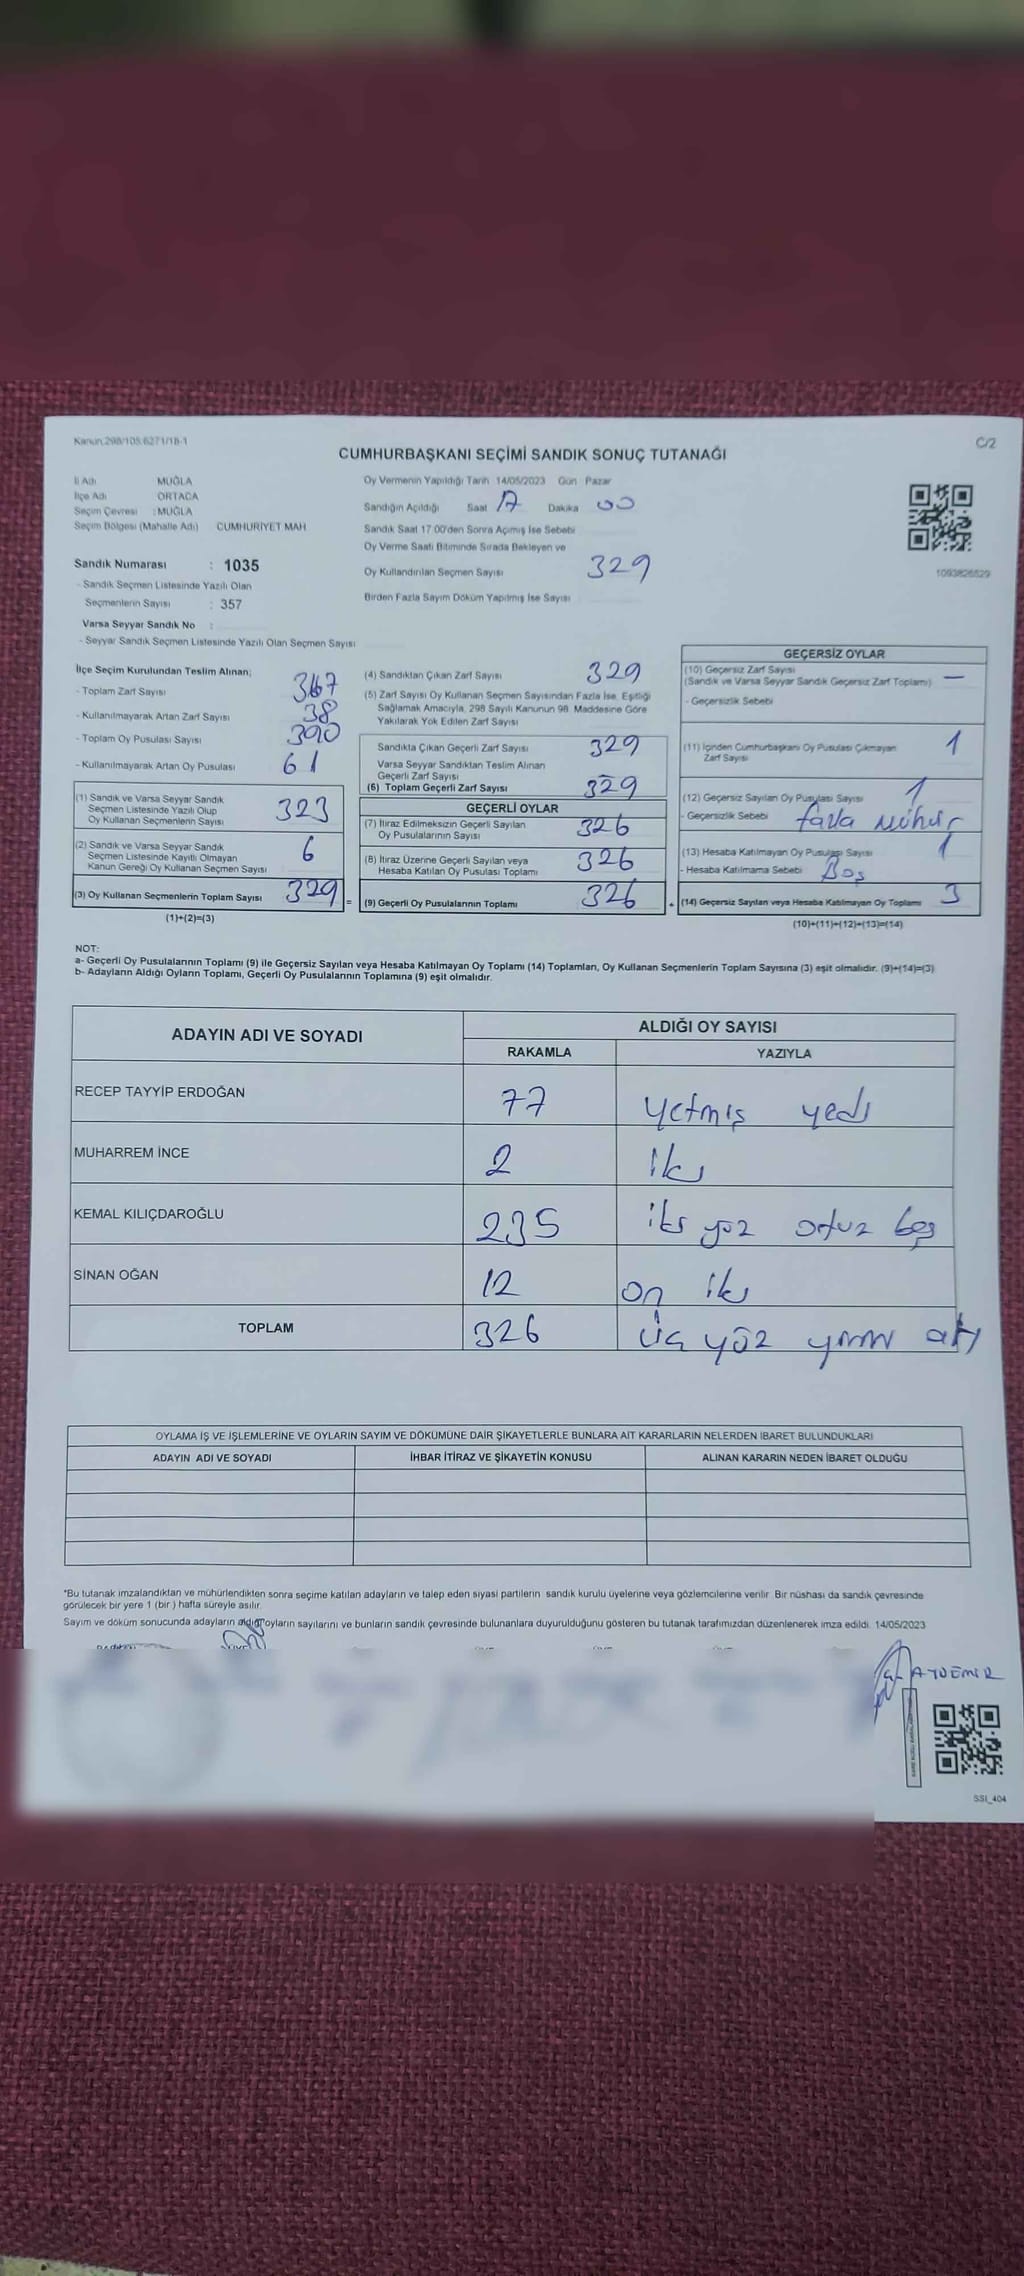 Kanun.298/105.6271/18-1
C/2
CUMHURBAŞKANI SEÇİMİ SANDIK SONUÇ TUTANAĞI
İl Adı MUĞLA
İlçe Adı ORTACA
Seçim Çevresi : MUĞLA
Seçim Bölgesi (Mahalle Adı) CUMHURİYET MAH
Sandık Numarası : 1035
- Sandık Seçmen Listesinde Yazılı Olan
Seçmenlerin Sayısı : 357
Varsa Seyyar Sandık No :
- Seyyar Sandık Seçmen Listesinde Yazılı Olan Seçmen Sayısı
Oy Vermenin Yapıldığı Tarih 14/05/2023 Gün Pazar
Sandığın Açıldığı Saat 17 Dakika 00
Sandık Saat 17.00'den Sonra Açılmış İse Sebebi
Oy Verme Saati Bitiminde Sırada Bekleyen ve
Oy Kullandırılan Seçmen Sayısı 329
Birden Fazla Sayım Döküm Yapılmış İse Sayısı
1093826529
İlçe Seçim Kurulundan Teslim Alınan;
- Toplam Zarf Sayısı
- Kullanılmayarak Artan Zarf Sayısı 38
- Toplam Oy Pusulası Sayısı 390
- Kullanılmayarak Artan Oy Pusulası 61
(1) Sandık ve Varsa Seyyar Sandık
Seçmen Listesinde Yazılı Olup
Oy Kullanan Seçmenlerin Sayısı 323
(2) Sandık ve Varsa Seyyar Sandık
Seçmen Listesinde Kayıtlı Olmayan
Kanun Gereği Oy Kullanan Seçmen Sayısı 6
(3) Oy Kullanan Seçmenlerin Toplam Sayısı 329 =
(1)+(2)=(3)
(4) Sandıktan Çıkan Zarf Sayısı 329
(5) Zarf Sayısı Oy Kullanan Seçmen Sayısından Fazla İse, Eşitliği
Sağlamak Amacıyla, 298 Sayılı Kanunun 98. Maddesine Göre
Yakılarak Yok Edilen Zarf Sayısı
Sandıkta Çıkan Geçerli Zarf Sayısı 329
Varsa Seyyar Sandıktan Teslim Alınan
Geçerli Zarf Sayısı
(6) Toplam Geçerli Zarf Sayısı 329
GEÇERLİ OYLAR
(7) İtiraz Edilmeksizin Geçerli Sayılan
Oy Pusulalarının Sayısı 326
(8) İtiraz Üzerine Geçerli Sayılan veya
Hesaba Katılan Oy Pusulası Toplamı 326
(9) Geçerli Oy Pusulalarının Toplamı 326 +
GEÇERSİZ OYLAR
(10) Geçersiz Zarf Sayısı
(Sandık ve Varsa Seyyar Sandık Geçersiz Zarf Toplamı) —
- Geçersizlik Sebebi
(11) İçinden Cumhurbaşkanı Oy Pusulası Çıkmayan
Zarf Sayısı 1
(12) Geçersiz Sayılan Oy Pusulası Sayısı 1
- Geçersizlik Sebebi fazla mühür
(13) Hesaba Katılmayan Oy Pusulası Sayısı 1
- Hesaba Katılmama Sebebi Boş
(14) Geçersiz Sayılan veya Hesaba Katılmayan Oy Toplamı 3
(10)+(11)+(12)+(13)=(14)
NOT:
a- Geçerli Oy Pusulalarının Toplamı (9) ile Geçersiz Sayılan veya Hesaba Katılmayan Oy Toplamı (14) Toplamları, Oy Kullanan Seçmenlerin Toplam Sayısına (3) eşit olmalıdır. (9)+(14)=(3)
b- Adayların Aldığı Oyların Toplamı, Geçerli Oy Pusulalarının Toplamına (9) eşit olmalıdır.
ADAYIN ADI VE SOYADI
ALDIĞI OY SAYISI
RAKAMLA YAZIYLA
RECEP TAYYİP ERDOĞAN 77 yetmiş yedi
MUHARREM İNCE 2 iki
KEMAL KILIÇDAROĞLU 235 iki yüz otuz beş
SİNAN OĞAN 12 on iki
TOPLAM 326 üç yüz yirmi altı
OYLAMA İŞ VE İŞLEMLERİNE VE OYLARIN SAYIM VE DÖKÜMÜNE DAİR ŞİKAYETLERLE BUNLARA AİT KARARLARIN NELERDEN İBARET BULUNDUKLARI
ADAYIN ADI VE SOYADI İHBAR İTİRAZ VE ŞİKAYETİN KONUSU ALINAN KARARIN NEDEN İBARET OLDUĞU
*Bu tutanak imzalandıktan ve mühürlendikten sonra seçime katılan adayların ve talep eden siyasi partilerin sandık kurulu üyelerine veya gözlemcilerine verilir. Bir nüshası da sandık çevresinde
görülecek bir yere 1 (bir) hafta süreyle asılır.
Sayım ve döküm sonucunda adayların aldığı oyların sayılarını ve bunların sandık çevresinde bulunanlara duyurulduğunu gösteren bu tutanak tarafımızdan düzenlenerek imza edildi. 14/05/2023
AYDEMİR
SSI_404